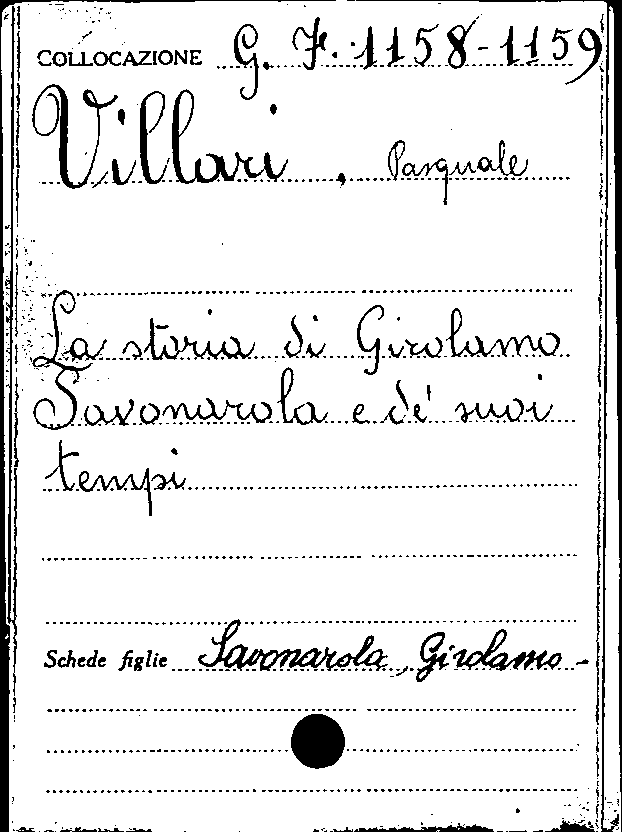 COLLOCAZIONE G. F. 1158-1159
Villari, Pasquale
La storia di Girolamo
Savonarola e de' suoi
tempi
Schede figlie Savonarola, Girolamo -